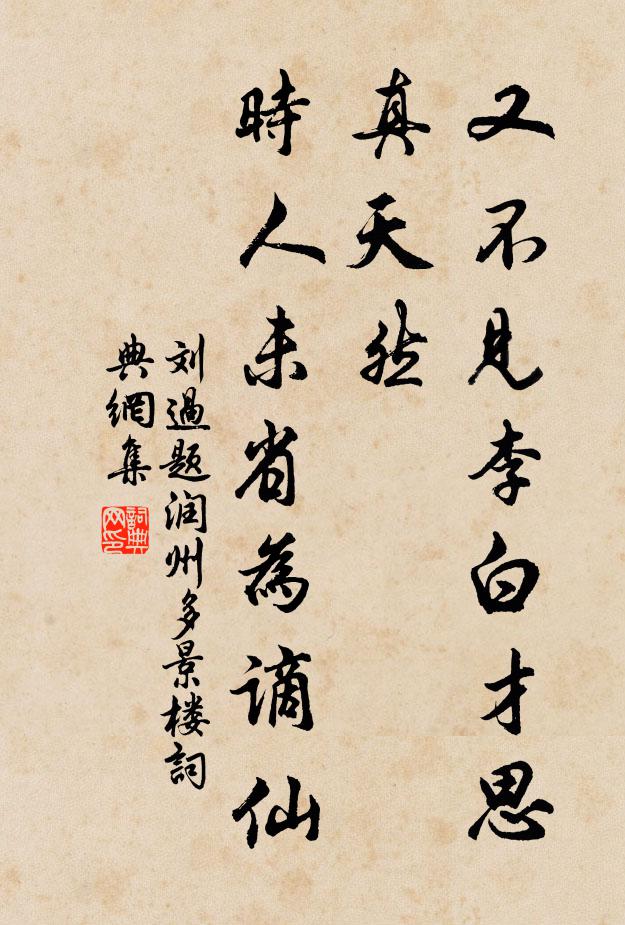 又不见李白才思
真天然
時人未省為謫仙
刘過题润州多景楼詞
典網集
詞典
网印